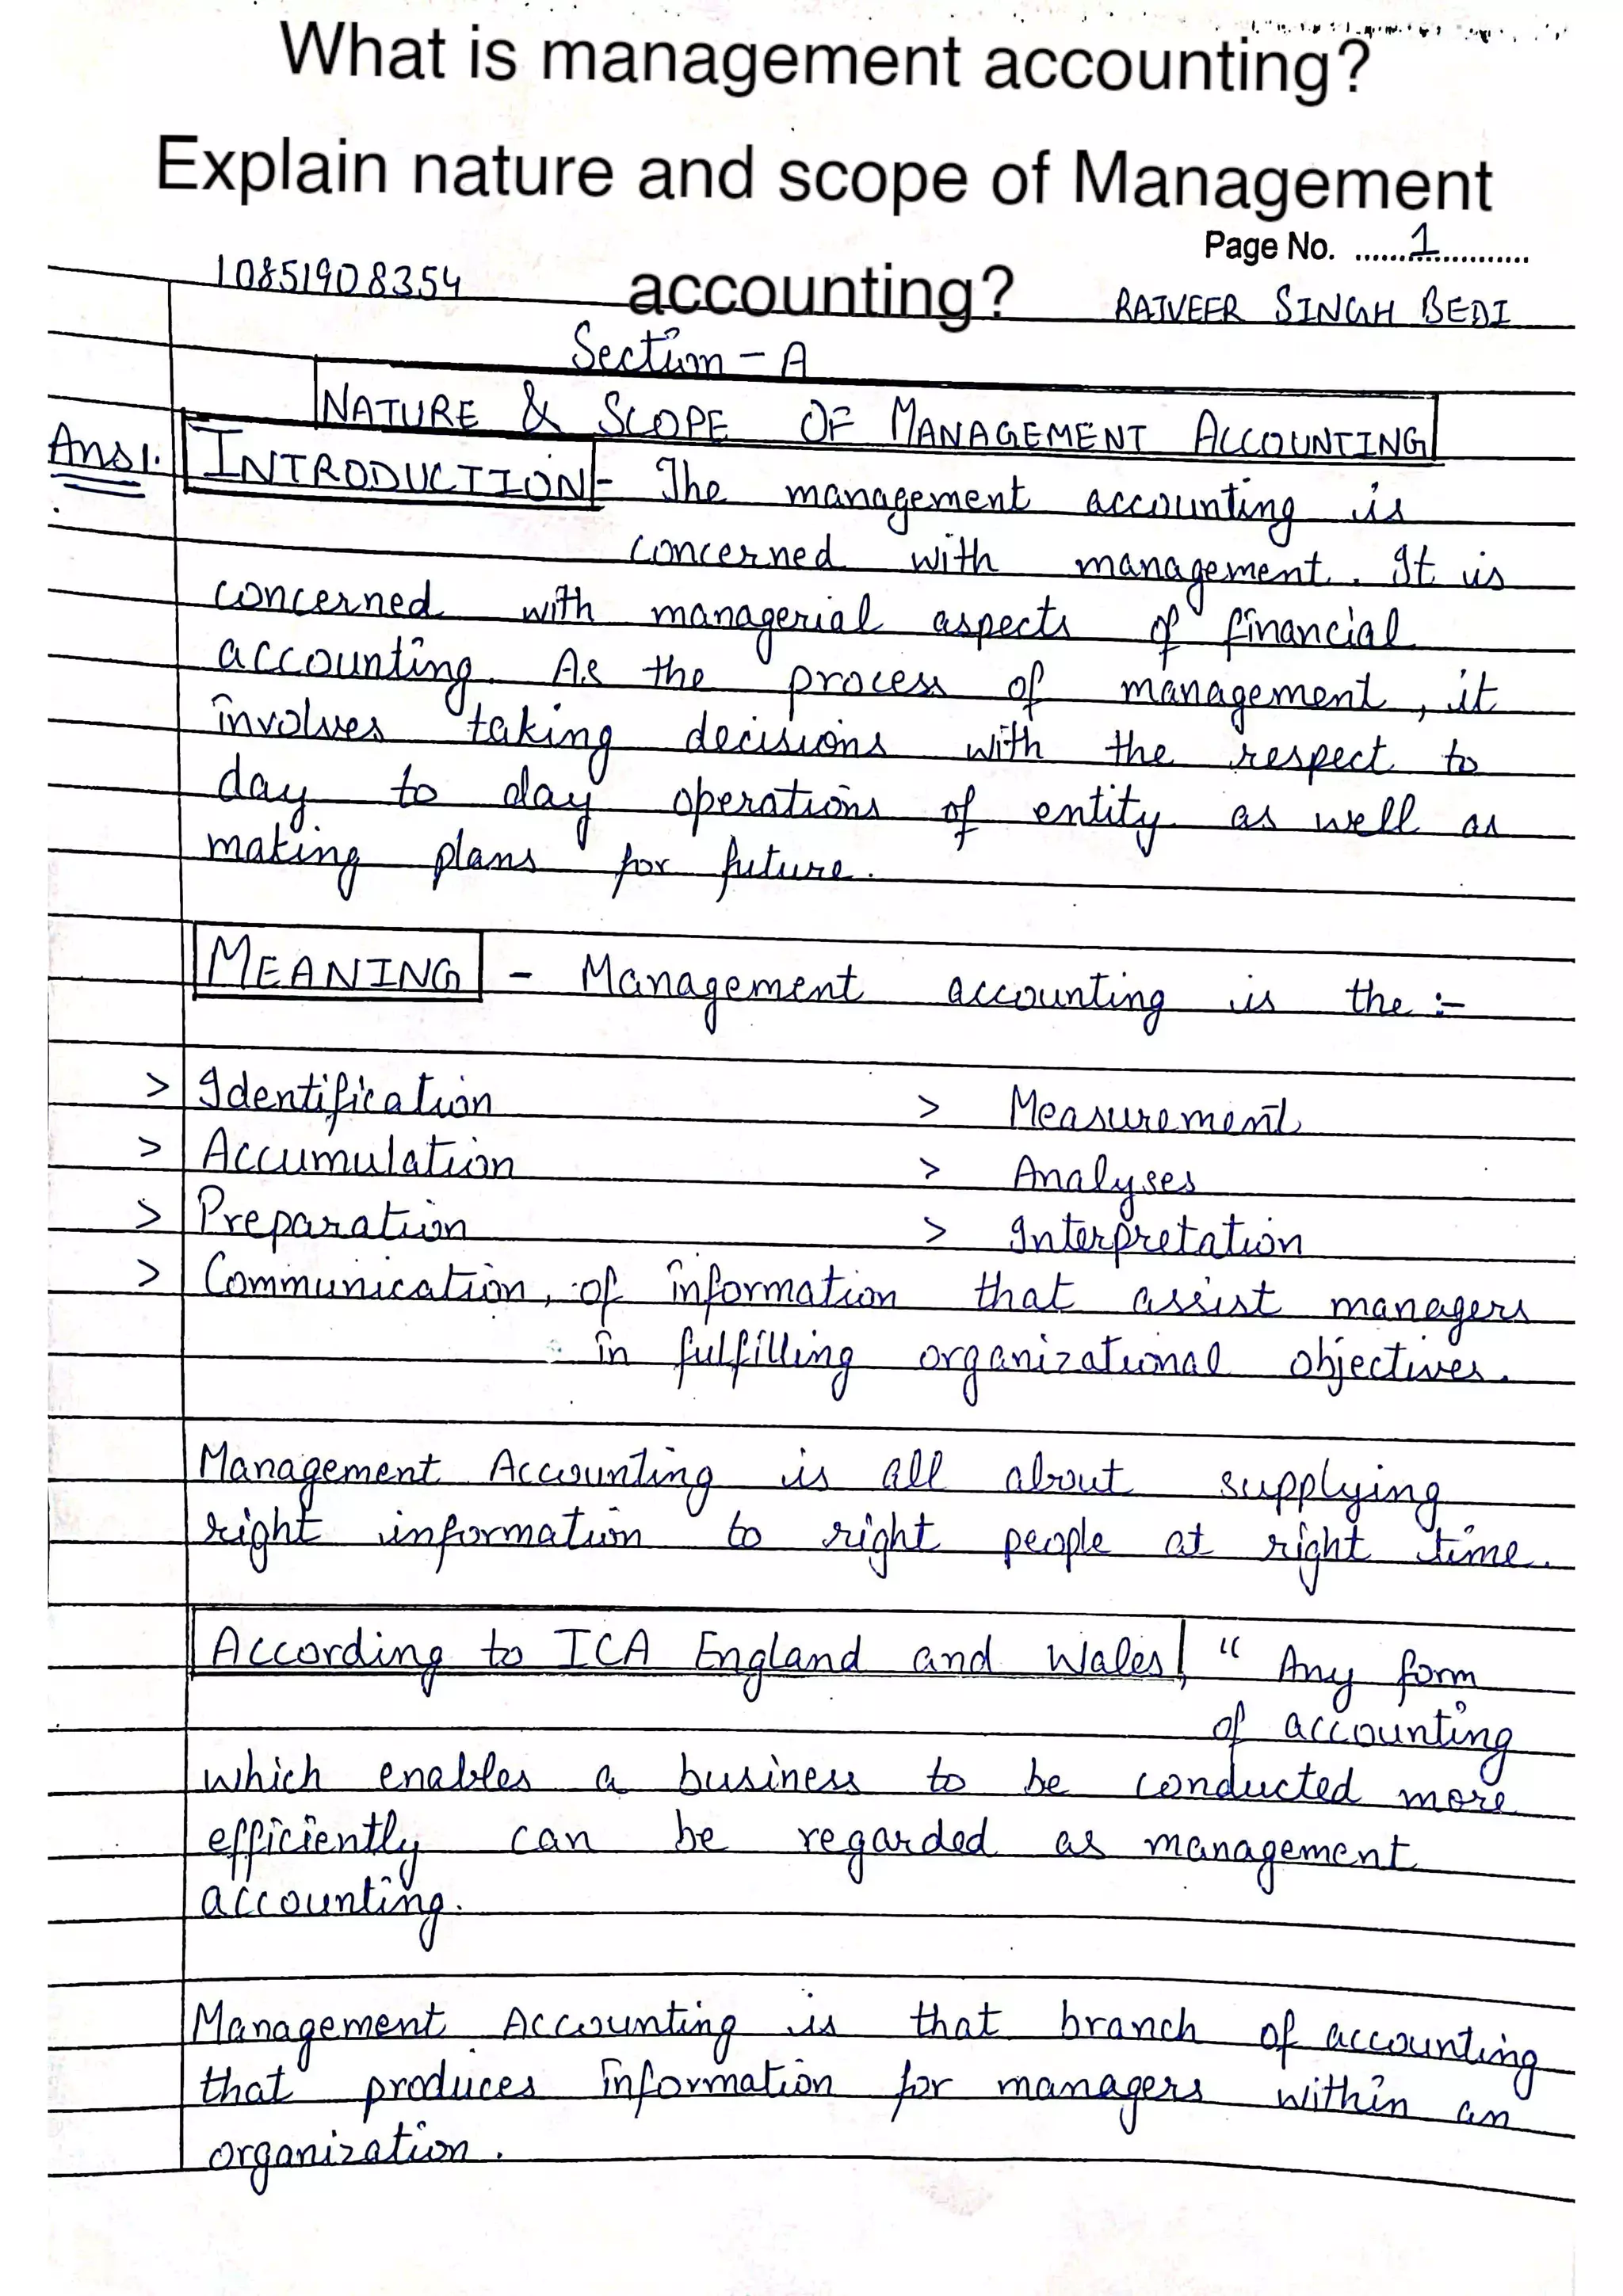 What is management accounting?
Explain nature and scope of Management
accounting?
Page No. ......1............
10851908354
RAJVEER SINGH BEDI
Section - A
NATURE & SCOPE OF MANAGEMENT ACCOUNTING
Ans1. INTRODUCTION - The management accounting is
concerned with management. It is
concerned with managerial aspects of financial
accounting. As the process of management, it
involves taking decisions with the respect to
day to day operations of entity as well as
making plans for future.
MEANING - Management accounting is the :-
> Identification > Measurement
> Accumulation > Analyses
> Preparation > Interpretation
> Communication, of information that assist managers
in fulfilling organizational objectives.
Management Accounting is all about supplying
right information to right people at right time.
According to ICA England and Wales, "Any form
of accounting
which enables a business to be conducted more
efficiently can be regarded as management
accounting.
Management Accounting is that branch of accounting
that produces information for managers within an
organization.